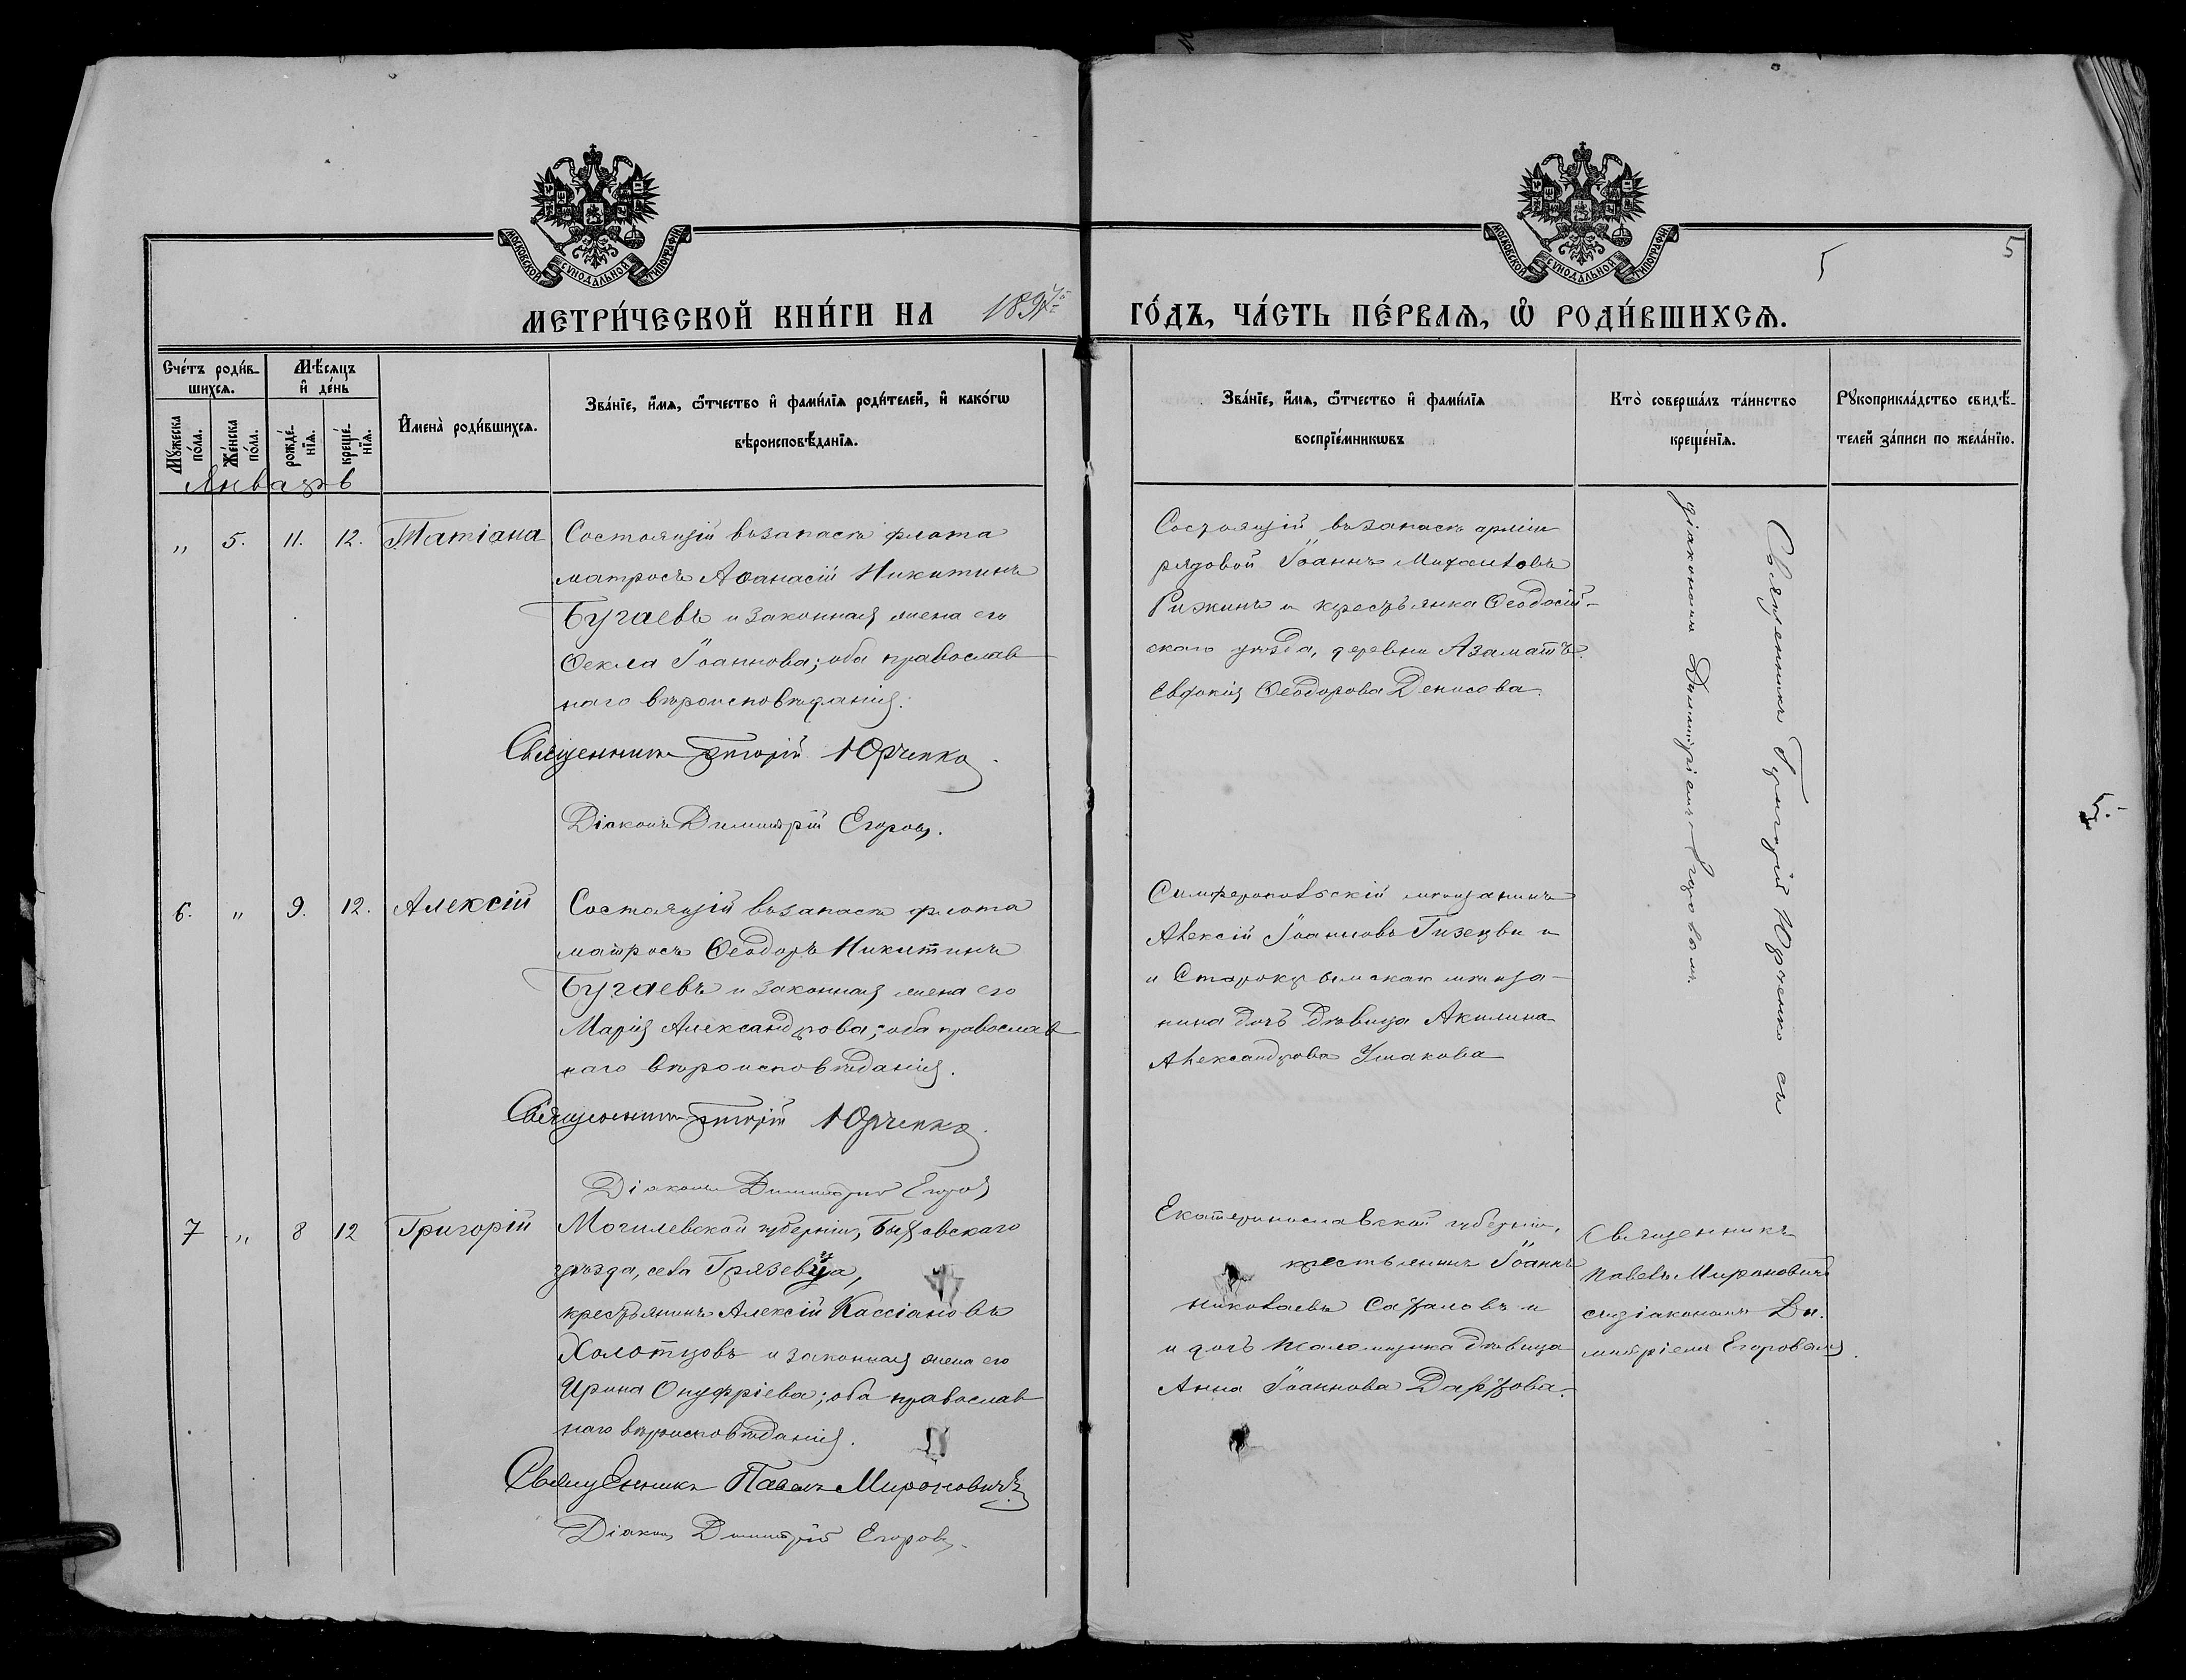 МОСКОВСКОЙ СУНОДАЛЬНОЙ ТИПОГРАФІИ
МОСКОВСКОЙ СУНОДАЛЬНОЙ ТИПОГРАФІИ
5
5
МЕТРИ́ЧЕСКОЙ КНИ́ГИ НА 1897й
ГО́ДЪ, ЧА́СТЬ ПЕ́РВАѦ, Ѽ РОДИ́ВШИХСѦ.
Сче́тъ роди́в-
шихсѧ.
Мѣ́сѧцъ
и҆ де́нь
Мꙋ́жеска
по́ла.
Же́нска
по́ла.
рожде́-
нїѧ.
креще́-
нїѧ.
И҆мена̀ роди́вшихсѧ.
Зва́нїе, и҆́мѧ, ѻ҆́тчество и҆ фами́лїѧ роди́телей, и҆ како́гѡ
вѣроисповѣ́данїѧ.
Зва́нїе, и҆́мѧ, ѻ҆́тчество и҆ фами́лїѧ
воспрїе́мникѡвъ
Кто̀ соверша́лъ та́инство
креще́нїѧ.
Рꙋкоприкла́дство свидѣ́-
телей за́писи по жела́нїю.
Январь
„ 5. 11. 12. Татіана
Состоящій въ запасѣ флота
матросъ Аѳанасій Никитинъ
Бугаевъ и законная жена его
Ѳекла Іоаннова; оба православ
наго вѣроисповѣданія.
Священникъ Григорій Юрченко
Діаконъ Димитрій Егоровъ.
Состоящій въ запасѣ арміи
рядовой Іоаннъ Михаиловъ
Рижинъ и крестьянка Ѳеодосій-
скаго уѣзда, деревни Азаматъ
Евфокія Ѳеодорова Денисова.
Священникъ Григорій Юрченко съ
діакономъ Димитріемъ Егоровымъ.
5.
6. „ 9. 12. Алексій
Состоящій въ запасѣ флота
матросъ Ѳеодоръ Никитинъ
Бугаевъ и законная жена его
Марія Александрова; оба православ
наго вѣроисповѣданія.
Священникъ Григорій Юрченко.
Діаконъ Димитрій Егоровъ
Симферопольскій мѣщанинъ
Алексій Іоанновъ и
и Старокрымскаго мѣща-
нина дочь дѣвица Акилина
Александрова Ушакова
7 „ 8 12 Григорій
Могилевской губерніи, Быховскаго
уѣзда, села
крестьянинъ Алексій Кассіановъ
Холотцовъ и законная жена его
Ирина Онуфріева; оба православ
наго вѣроисповѣданія.
Священникъ Павелъ Мироновичъ
Діаконъ Димитрій Егоровъ.
Екатеринославской губерніи,
крестьянинъ Іоаннъ
Николаевъ и
и дочь дѣвица
Анна Іоаннова
Священникъ
Павелъ Мироновичъ
съ діакономъ Ди-
митріемъ Егоровымъ.